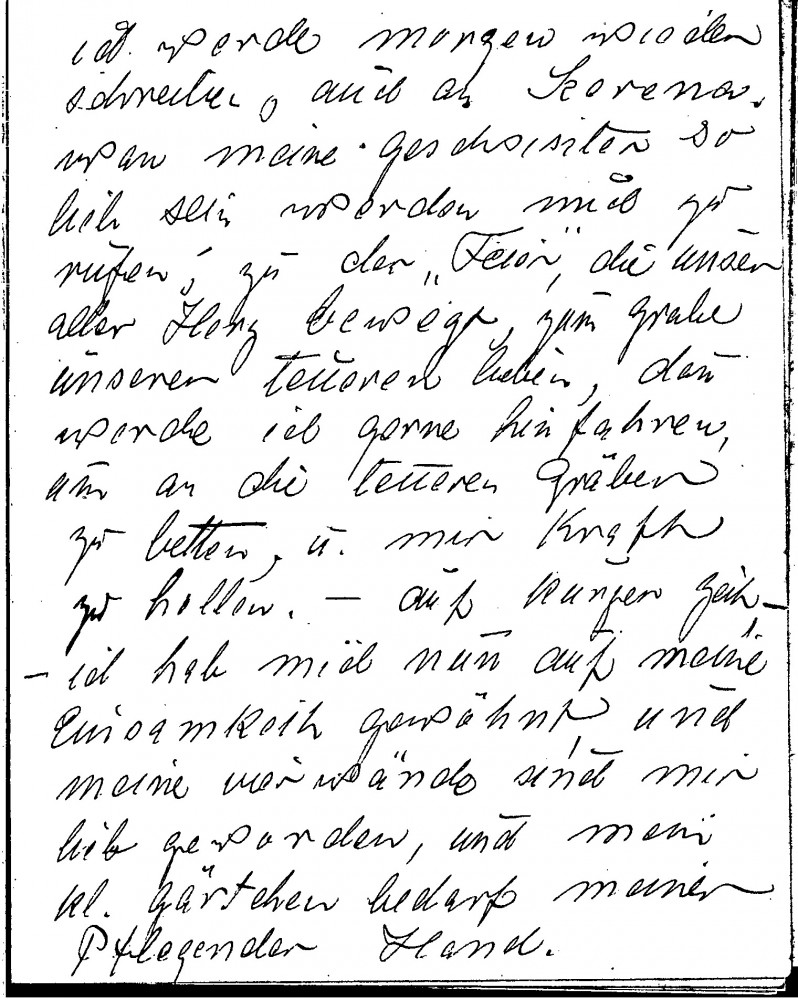 ich werde morgen wieder
schreiben, auch an Korena.
wan meine geschwister so
lieb sein werden mich zu
rufen, zu der „Feier", die unser
aller Herz bewegt, zum grabe
unseren teueren lieben, dan
werde ich gerne hinfahren,
um an die teueren Gräber
zu betten, u. mir Kraft
zu hollen. — auf kurzer zeit —
— ich hab mich nun auf meine
Einsamkeit gewöhnt, und
meine vier wände sind mir
lieb geworden, und mein
kl. gärtchen bedarf meiner
Pflegender Hand.